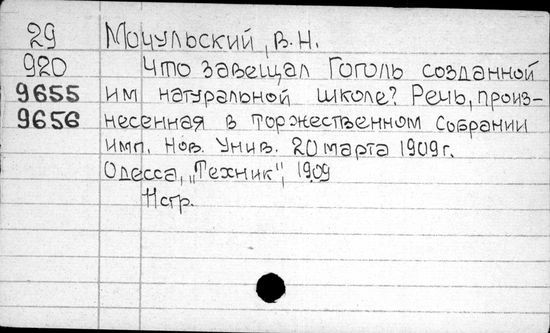 29 Мочульский, В.Н.
920 Что завещал Гоголь созданной
9655 им натуральной школе? Речь, произ-
9656 несенная в торжественном собрании
имп. Нов. Унив. 20 марта 1909 г.
Одесса, "Техник", 1909
11 стр.